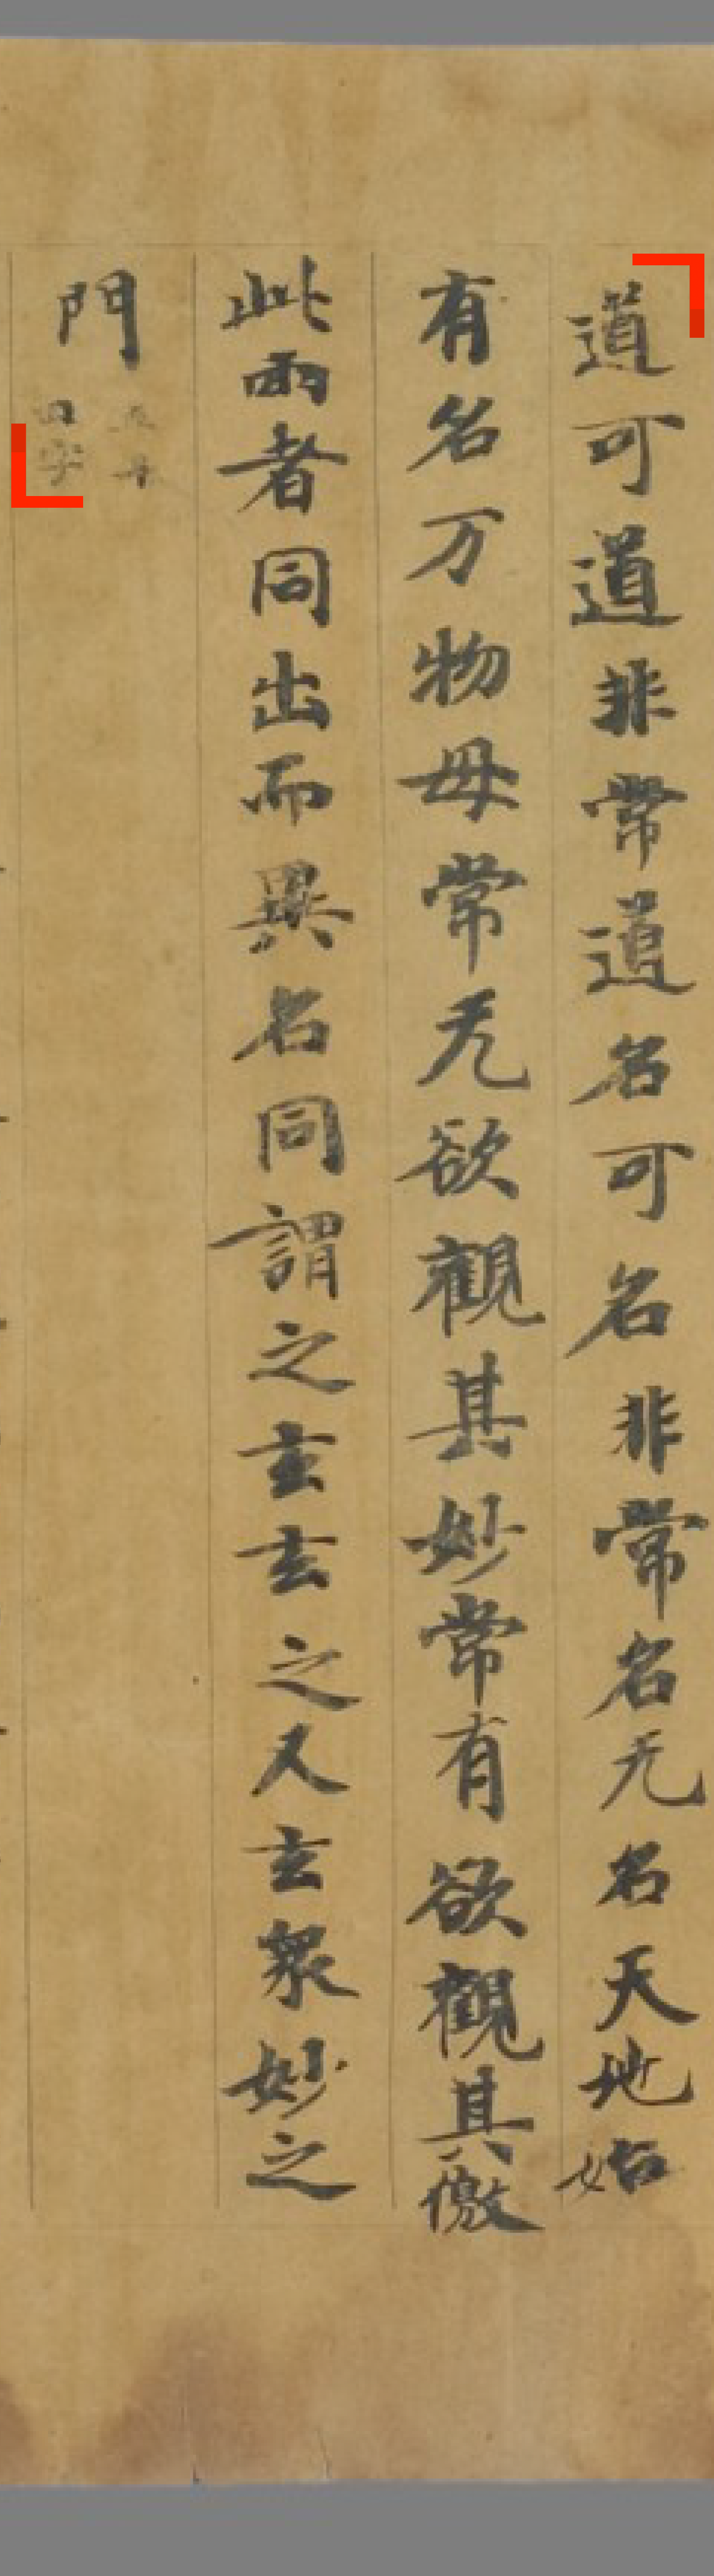 道可道非常道名可名非常名无名天地始
有名万物母常无欲觀其妙常有欲觀其儌
此兩者同出而異名同謂之玄玄之又玄衆妙之
門